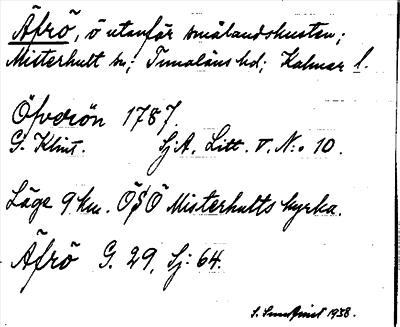 Äfrö, ö utanför smålandskusten;
Misterhult sn; Tunaläns hd; Kalmar l.
Öfverön 1787.
G. Klint. Sj.A. Litt. V. N:o 10.
Läge 9 km. ÖSÖ Misterhults kyrka.
Äfrö G. 29, Sj: 64.
S. 1938.